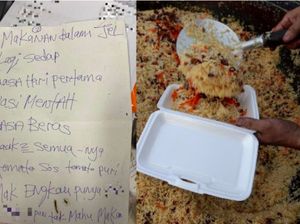 MAKANAN dalam JEL
Lagi sedap
HARI PERTAMA
NASI MENTAH
RASA Beras
SEMUA - nya
tomato sos tomato puri
MAK ENGKAU punya
pun tak Mahu Makan